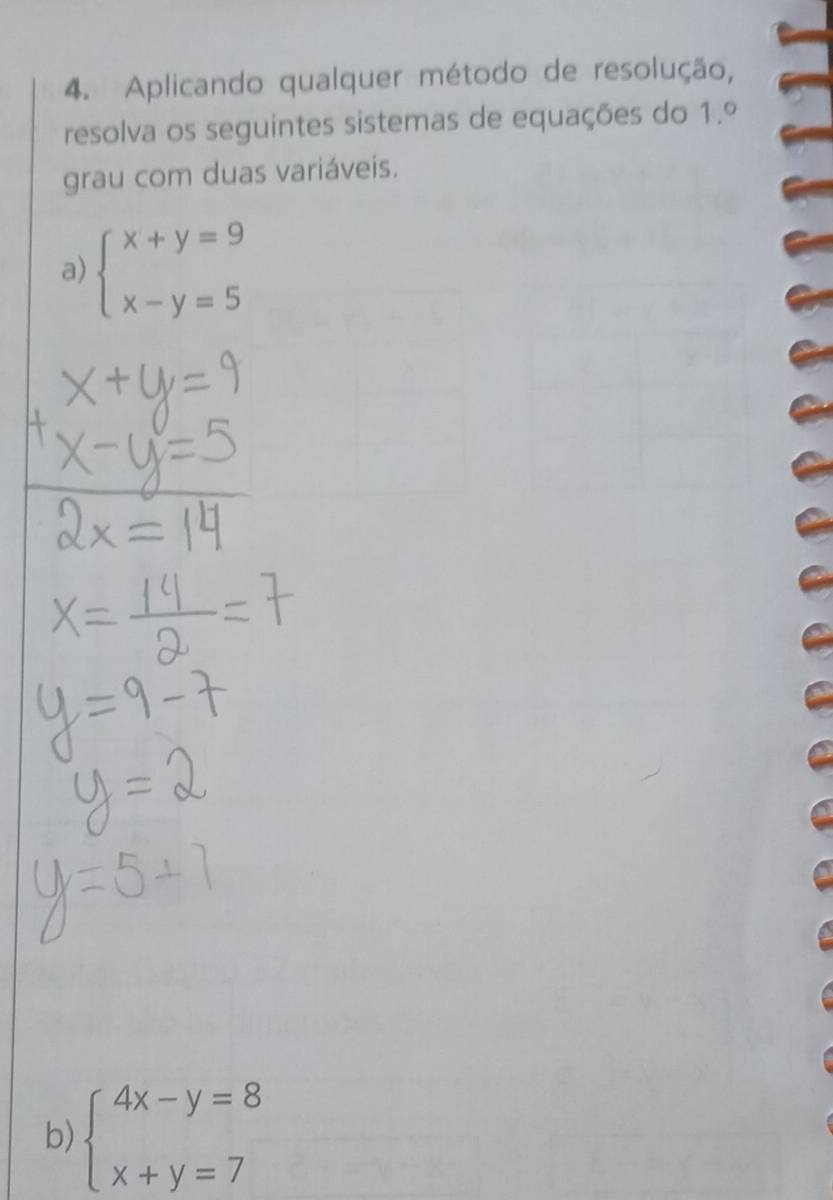 4. Aplicando qualquer método de resolução,
resolva os seguintes sistemas de equações do 1.º
grau com duas variáveis.
a) { x + y = 9
x – y = 5
x + y = 9
+ x - y = 5
2x = 14
x = 14/2 = 7
y = 9 - 7
y = 2
y = 5 +
b) { 4x – y = 8
x + y = 7